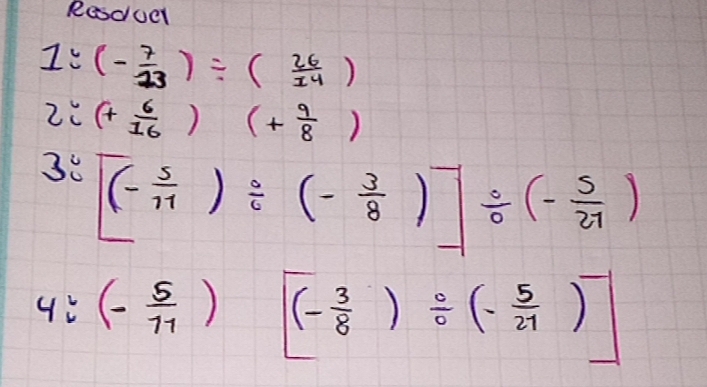 Resolver
1: (- 7/13) ÷ (26/14)
2: (+ 6/16) (+ 9/8)
3: [(- 5/11) ÷ (- 3/8)] ÷ (- 5/21)
4: (- 5/11) [(- 3/8) ÷ (- 5/21)]